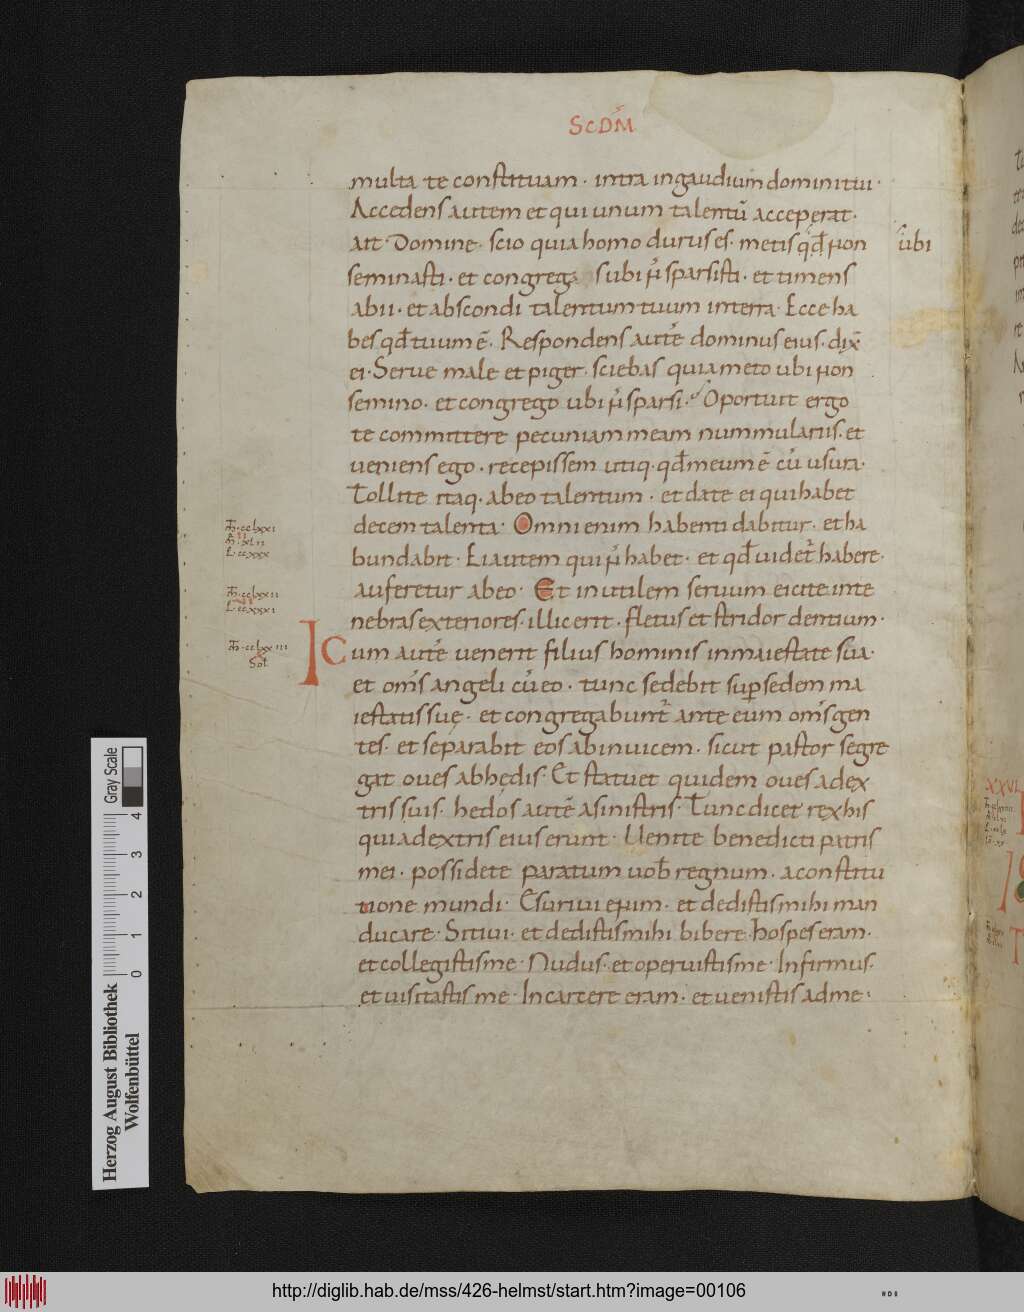 SCDM̄
multa te constituam · intra in gaudium domini tui ·
Accedens autem et qui unum talentū acceperat ·
ait · Domine · scio quia homo durus es · metis qđ non
ubi
seminasti · et congregas ubi n̄ sparsisti · et timens
abii · et abscondi talentum tuum in terra · Ecce ha
bes qđ tuum ē · Respondens autē dominus eius · dix̄
ei · Serue male et piger · sciebas quia meto ubi non
semino · et congrego ubi n̄ sparsi · Oportuit ergo
te committere pecuniam meam nummulariis · et
ueniens ego · recepissem utiq · qđ meum ē cū usura ·
Tollite itaq · ab eo talentum · et date ei qui habet
decem talenta · Omni enim habenti dabitur · et ha
bundabit · Ei autem qui n̄ habet · et qđ uidet̄ habere ·
auferetur ab eo · Et inutilem seruum eicite in te
nebras exteriores · illic erit · fletus et stridor dentium ·
Cum autē uenerit filius hominis in maiestate sua ·
et om̄s angeli cū eo · tunc sedebit sup sedem ma
iestatis suę · et congregabunt̄ ante eum om̄s gen
tes · et separabit eos ab inuicem · sicut pastor segre
gat oues ab hędis · Et statuet quidem oues a dex
tris suis · hedos autē a sinistris · Tunc dicet rex his
qui a dextris eius erunt · Uenite benedicti patris
mei · possidete paratum uob̄ regnum · a constitu
tione mundi · Esuriui enim · et dedistis mihi man
ducare · Sitiui · et dedistis mihi bibere · hospes eram ·
et collegistis me · Nudus · et operuistis me · Infirmus ·
et uisitastis me · In carcere eram · et uenistis ad me ·
cclxxi
xlii
L · ccxxx
cclxxii
L · ccxxxi
cclxxiii
Sol
XXVI
Gray Scale
0 1 2 3 4
Herzog August Bibliothek
Wolfenbüttel
http://diglib.hab.de/mss/426-helmst/start.htm?image=00106